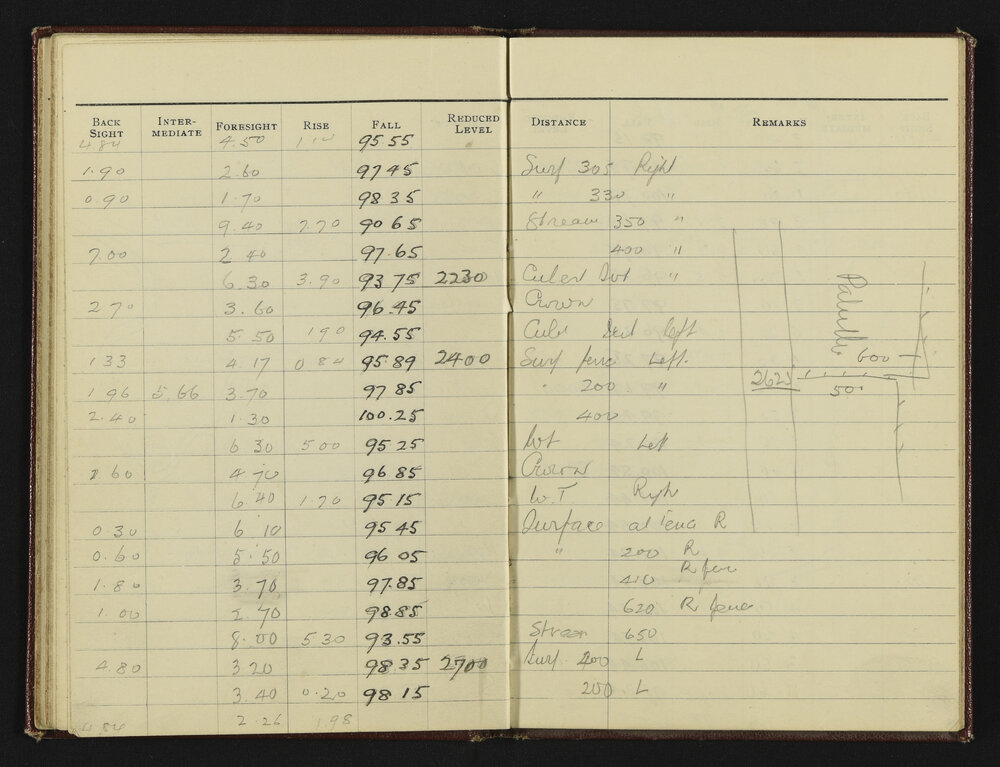 BACK SIGHT INTER-MEDIATE FORESIGHT RISE FALL REDUCED LEVEL DISTANCE REMARKS
4.84 4.50 95 55
1.90 2.60 97 45 Surf 305 Right
0.90 1.70 98 35 " 330 "
9.40 7.70 90 65 Stream 350 "
7.00 2 40 97.65 400 "
6.30 3.90 93 75 2230 "
2 70 3.60 96.45 Crown
5.50 1 90 94.55 left
1 33 4 17 0 84 95.89 2400 Surf Left.
1 96 5.66 3.70 97 85 200 "
2.40 1.30 100.25 400
6 30 5 00 95 25 Left
1.60 4 70 96.85 Crown
6 40 1.70 95 15 W.T
0.30 6 10 95 45 Surface at R
0.60 5.50 96 05 " 200 R
1.80 3.70 97.85 410 R
1.00 2 70 98.85 620 R
8.00 5 30 93.55 650
4.80 3 20 98.35 2700 Surf 400 L
3.40 0.20 98 15 200 L
4.84 2.26 1.98
600
2625
50